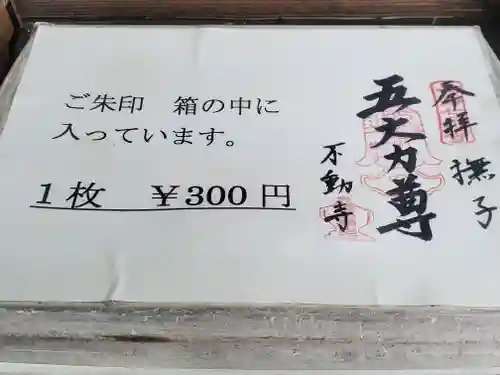 ご朱印　箱の中に
入っています。
1枚　￥300円
奉拝　撫子
五大力尊
不動寺